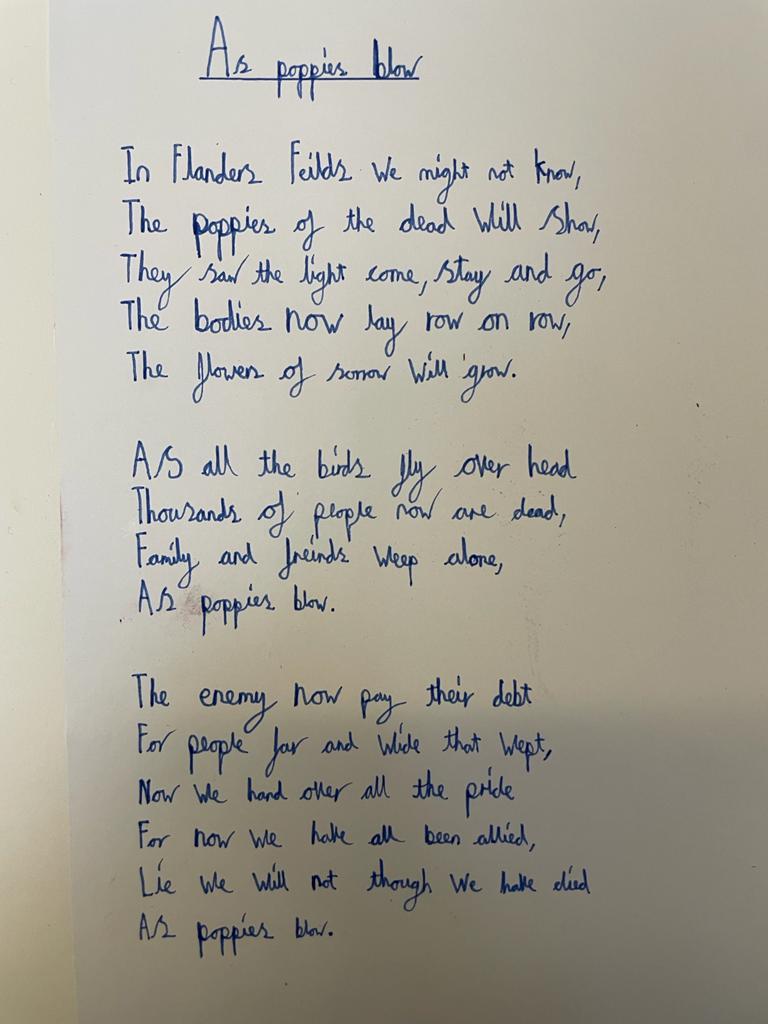 As poppies blow
In Flanders Feilds we might not know,
The poppies of the dead will show,
They saw the light come, stay and go,
The bodies now lay row on row,
The flowers of sorrow will grow.
As all the birds fly over head
Thousands of people now are dead,
Family and freinds weep alone,
As poppies blow.
The enemy now pay their debt
For people far and wide that wept,
Now we hand over all the pride
For now we have all been allied,
Lie we will not though we have died
As poppies blow.